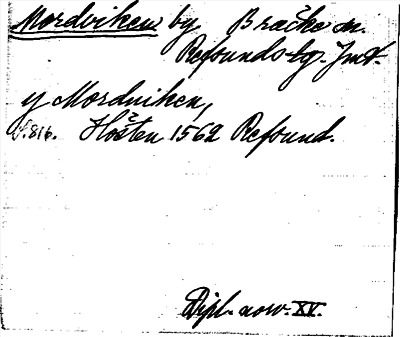 Mordviken by Bräcke sn.
Refsunds tg. Jmt.
y Mordviken,
s. 816. Hösten 1562 Refsund.
Dipl. norv. XV.